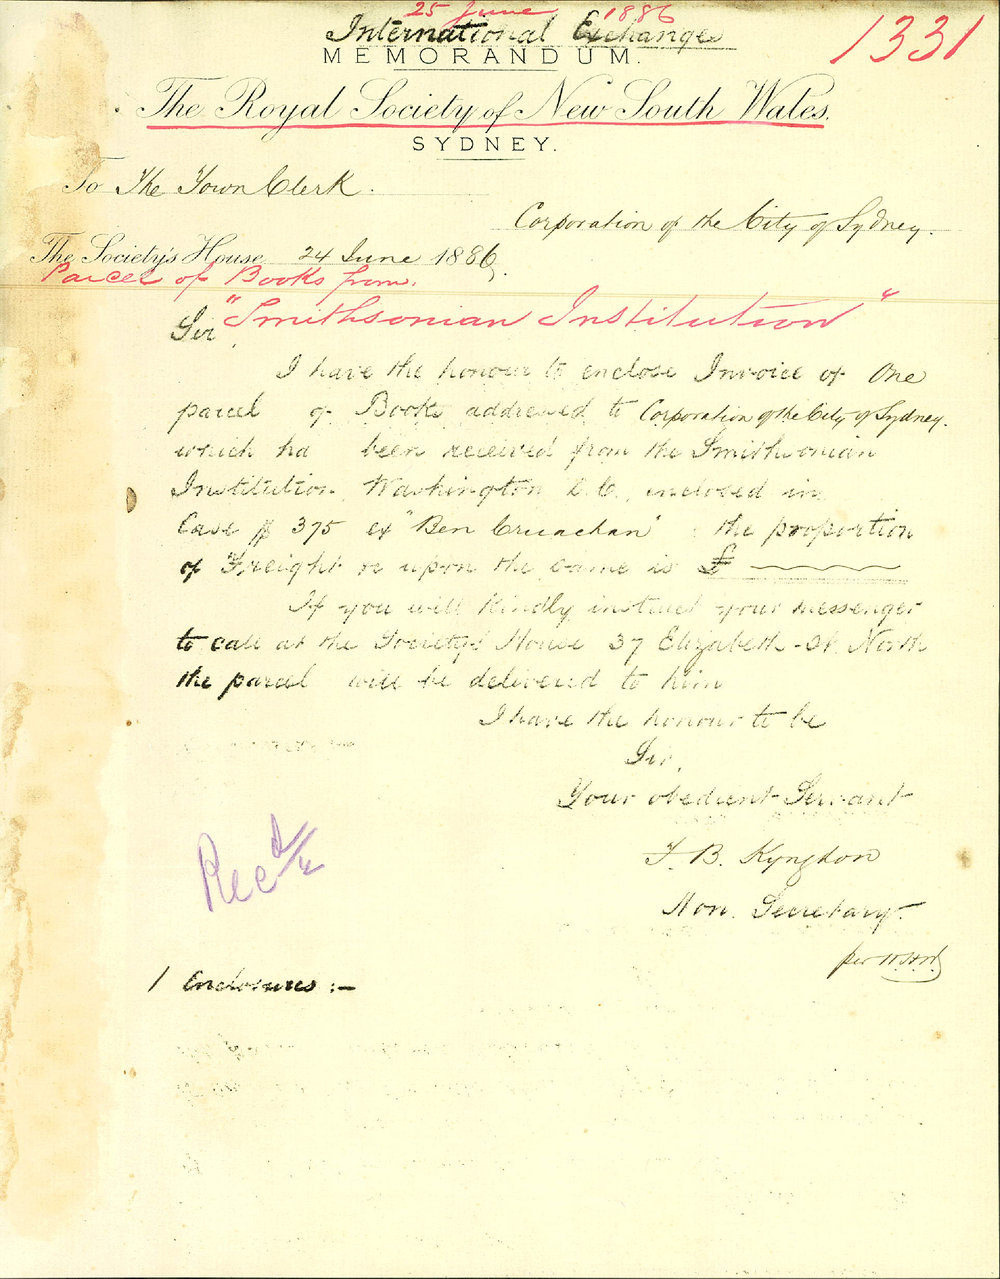 25 June 1886
International Exchange
1331
MEMORANDUM.
The Royal Society of New South Wales.
SYDNEY.
To The Town Clerk.
Corporation of the City of Sydney.
The Society's House 24 June 1886.
Parcel of Books from.
"Smithsonian Institution"
Sir,
I have the honour to enclose Invoice of One
parcel of Books addressed to Corporation of the City of Sydney.
which ha been received from the Smithsonian
Institution, Washington D.C., enclosed in
Case # 375 ex "Ben Cruachan" the proportion
of Freight re upon the same is £
If you will kindly instruct your messenger
to call at the Society's House 37 Elizabeth St. North
the parcel will be delivered to him
I have the honour to be
Sir,
Your obedient Servant
F. B. Kyngdon
Hon. Secretary.
per
Recd
1 Enclosures :-